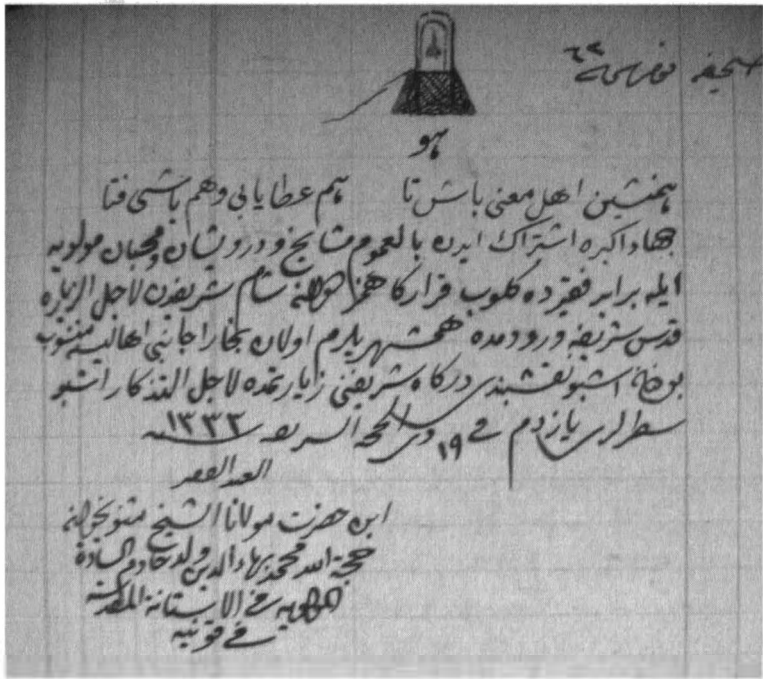 صحيفه نومروسى ٦٣
هو
همنشين اهل معنى باش تا هم عطا يابى وهم باشى فتا
جهاد اكبره اشتراك ايدن بالعموم مشايخ ودرويشان ومحبان مولويه
ايله برابر فقيرده كلوب قراركاهمز اولان شام شريفدن لاجل الزياره
قدس شريفه ورودمده همشهريلرم اولان بخارا جانبى اهاليسنه منسوب
بولنان اشبو نقشبندى دركاه شريفنى زيارتمده لاجل التذكار اشبو
سطرلرى يازدم فى ١٩ ذى الحجه الشريفه سنه ١٣٣٣
العبد الفقير
ابن حضرت مولانا الشيخ مثنويخوان
محمد بهاء الدين ولد خادم السادة
المولويه فى الاستانة المقدسه
فى قونيه